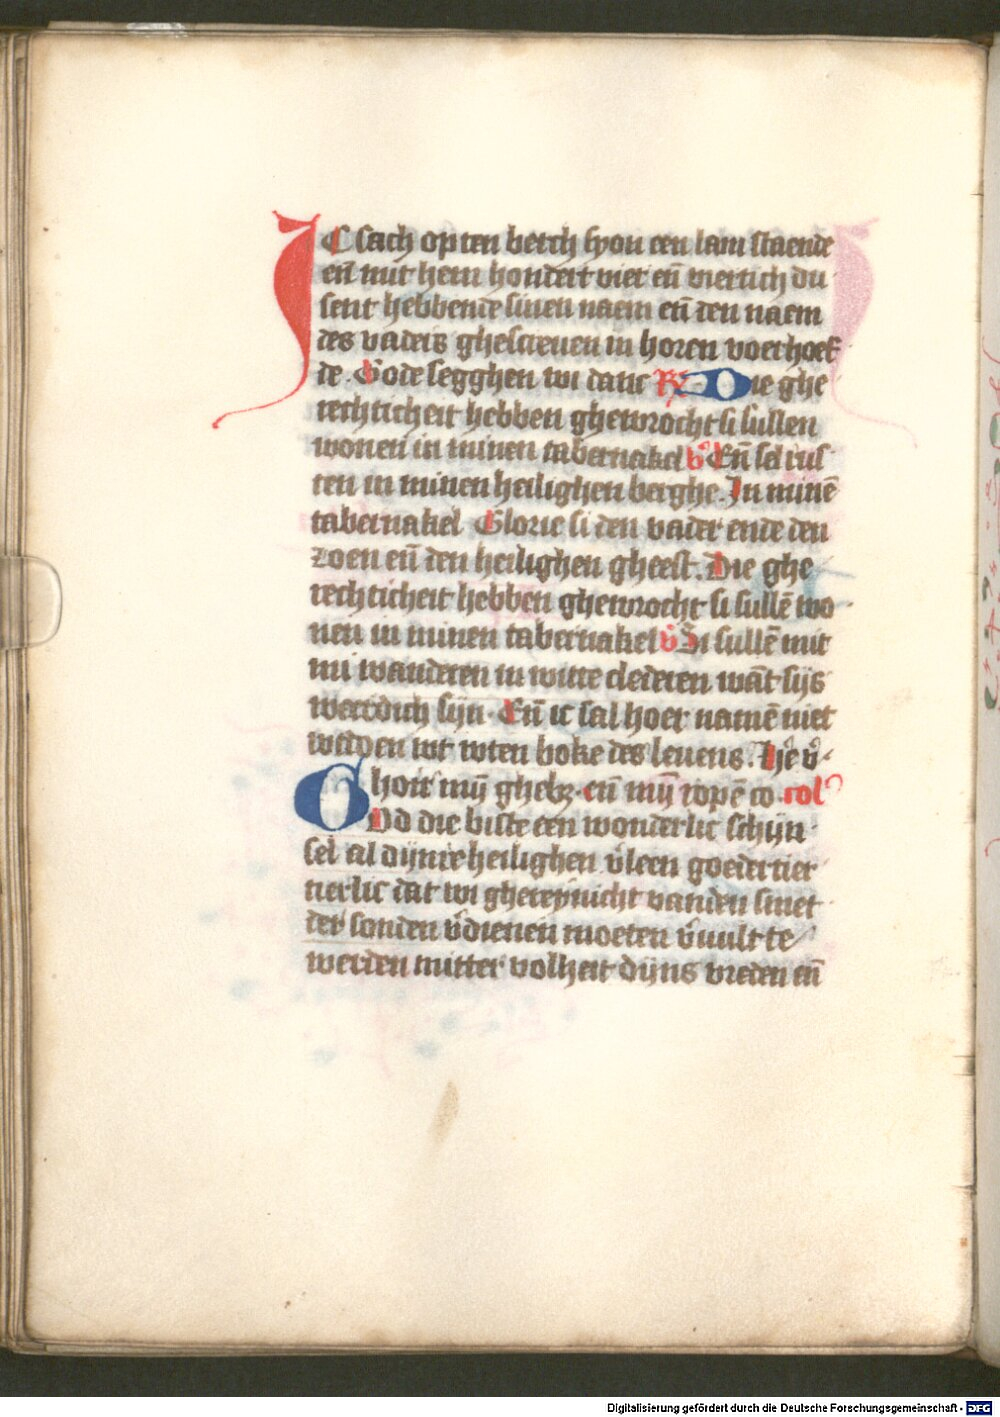 IC sach op ten berch syon een lam staende
eñ mit hem hondert vier eñ viertich du
sent hebbende sinen naem eñ den naem
des vaders ghescreuen in horen voerhoef
de. Gode segghen wi danc R Die ghe
rechticheit hebben ghewrocht si sullen
wonen in minen tabernakel v̊ Eñ sel rus
ten in minen heilighen berghe. In minē
tabernakel Glorie si den vader ende den
zoen eñ den heilighen gheest. Die ghe
rechticheit hebben ghewrocht si sullē wo
nen in minen tabernakel v̊ Si sullē mit
mi wanderen in witte clederen wāt sijs
werdich sijn. Eñ ic sal hoer namē niet
wt wten boke des leuens. h̄e v̊
hoir mijn ghebz. eñ mijn ropē co col
GOd die biste een wonderlic schijn
sel al dijnre heilighen v̊leen goedertier
tierlic dat wi ghereynicht vanden smet
der sonden v̊dienen moeten v̊uult te
werden mitter volheit dijns vreden eñ
Digitalisierung gefördert durch die Deutsche Forschungsgemeinschaft - DFG